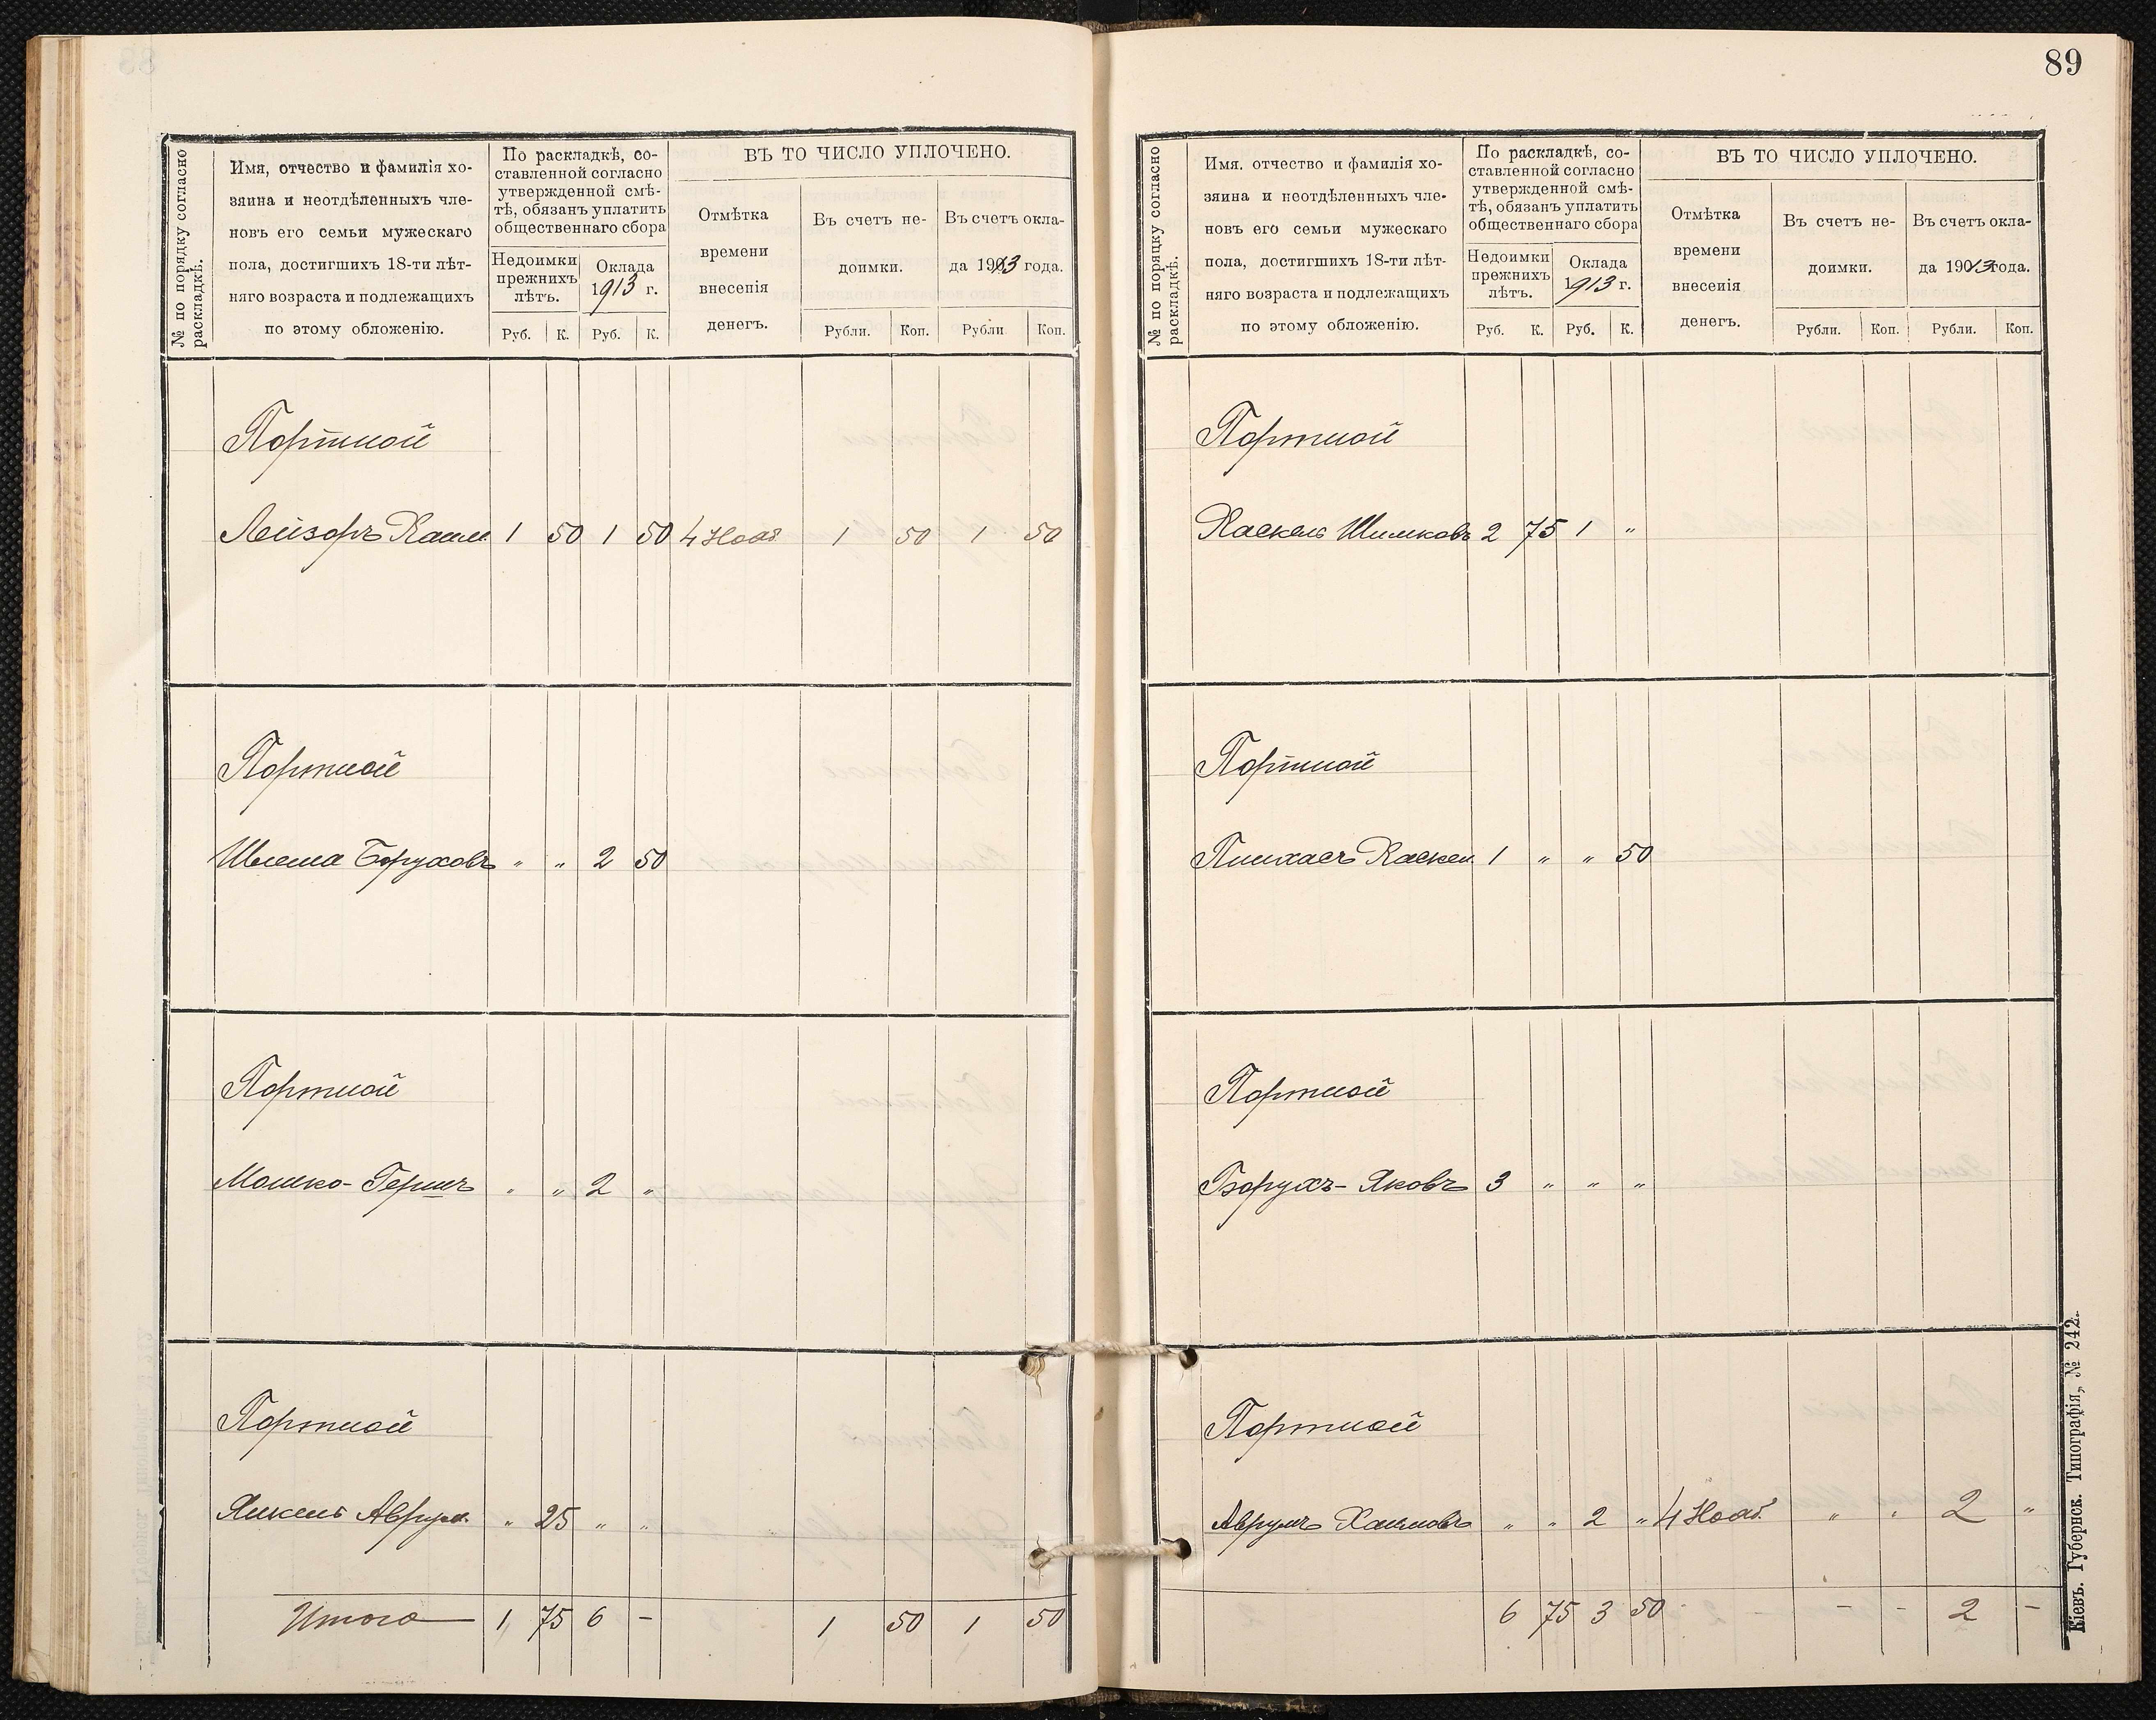 № по порядку согласно
раскладкѣ.
Имя, отчество и фамилія хо-
зяина и неотдѣленныхъ чле-
новъ его семьи мужескаго
пола, достигшихъ 18-ти лѣт-
няго возраста и подлежащихъ
по этому обложенію.
По раскладкѣ, со-
ставленной согласно
утвержденной смѣ-
тѣ, обязанъ уплатить
общественнаго сбора
Недоимки
прежнихъ
лѣтъ.
Оклада
1913 г.
Руб. К. Руб. К.
ВЪ ТО ЧИСЛО УПЛОЧЕНО.
Отмѣтка
времени
внесенія
денегъ.
Въ счетъ не-
доимки.
Въ счетъ окла-
да 1913 года.
Рубли. Коп. Рубли Коп.
Портной
Лейзоръ Кашм. 1 50 1 50 4 Нояб. 1 50 1 50
Портной
Шлема Боруховъ " " 2 50
Портной
Мошко-Гершъ " " 2 "
Портной
Янкель Аврум. " 25 " "
Итого 1 75 6 - 1 50 1 50
89
№ по порядку согласно
раскладкѣ.
Имя. отчество и фамилія хо-
зяина и неотдѣленныхъ чле-
новъ его семьи мужескаго
пола, достигшихъ 18-ти лѣт-
няго возраста и подлежащихъ
по этому обложенію.
По раскладкѣ, со-
ставленной согласно
утвержденной смѣ-
тѣ, обязанъ уплатить
общественнаго сбора
Недоимки
прежнихъ
лѣтъ.
Оклада
1913 г.
Руб. К. Руб. К.
ВЪ ТО ЧИСЛО УПЛОЧЕНО.
Отмѣтка
времени
внесенія
денегъ.
Въ счетъ не-
доимки.
Въ счетъ окла-
да 1913 года.
Рубли. Коп. Рубли. Коп.
Портной
Хаскель Шимковъ 2 75 1 "
Портной
Пинхасъ Хаскел. 1 " " 50
Портной
Борухъ-Яковъ 3 " " "
Портной
Аврумъ Хаимовъ " " 2 " 4 Нояб. " " 2 "
6 75 3 50 - - 2 -
Кіевъ. Губернск. Типографія, № 242.